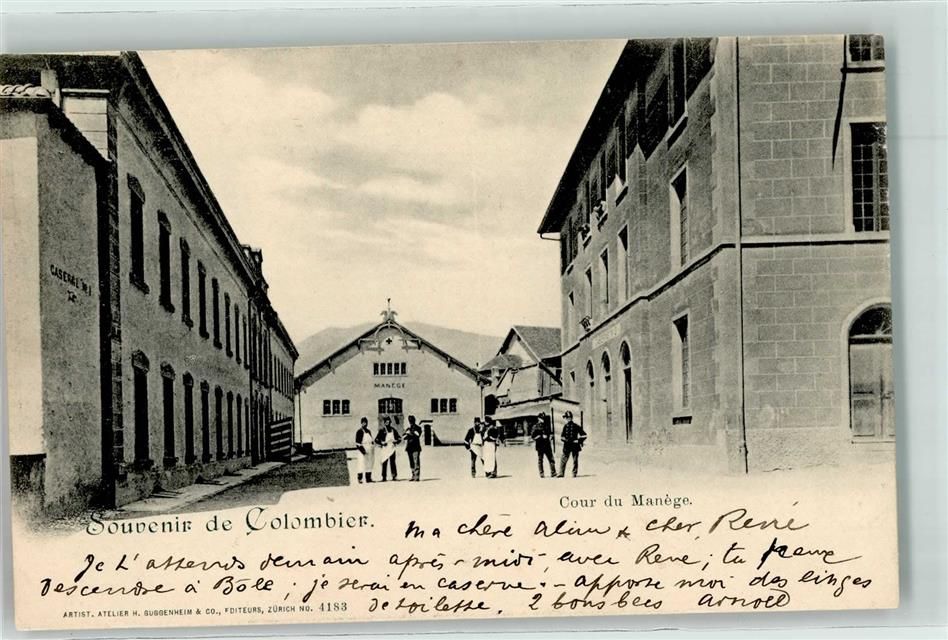 CASERNE Nº 1
MANÈGE
Cour du Manège.
Souvenir de Colombier.
Ma chère Aline & cher René
Je t'attends demain après-midi, avec René; tu peux
descendre à Bôle; je serai en caserne. - apporte moi des linges
de toilette. 2 bons bees Arnold
ARTIST. ATELIER H. GUGGENHEIM & CO., EDITEURS, ZÜRICH NO. 4183